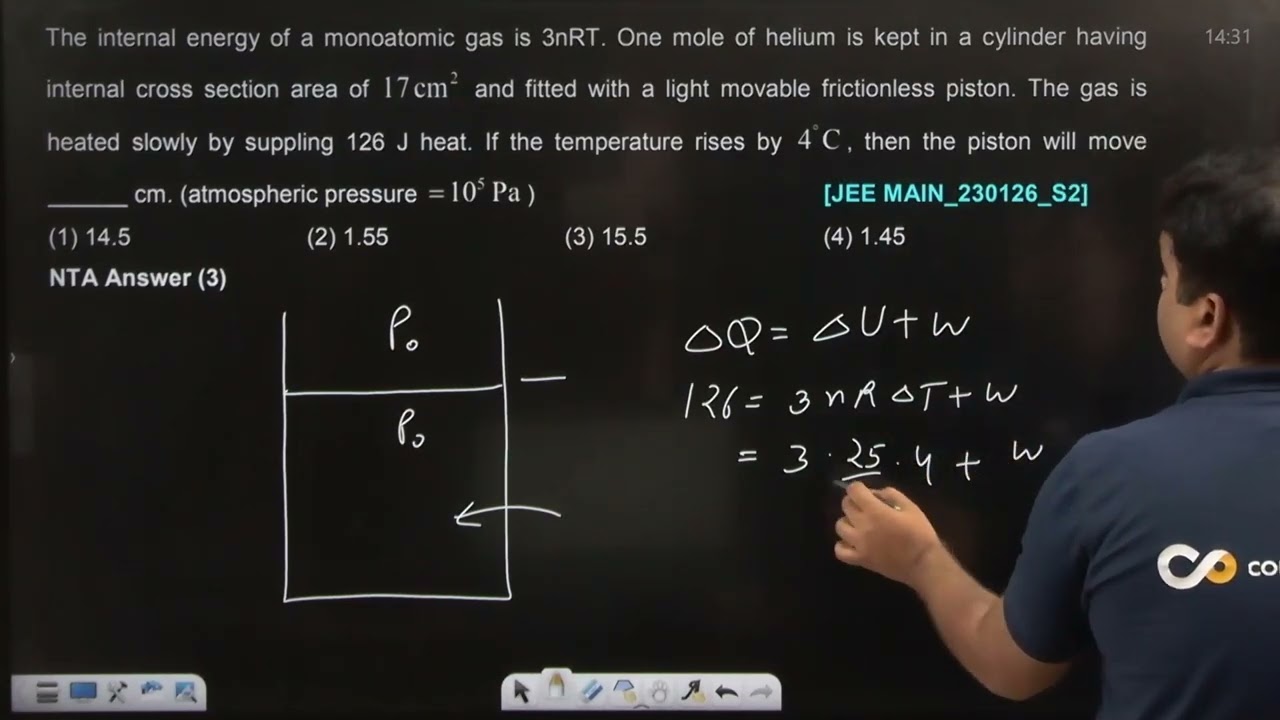 The internal energy of a monoatomic gas is 3nRT. One mole of helium is kept in a cylinder having
14:31
internal cross section area of 17 cm² and fitted with a light movable frictionless piston. The gas is
heated slowly by suppling 126 J heat. If the temperature rises by 4°C, then the piston will move
______ cm. (atmospheric pressure = 10⁵ Pa )
[JEE MAIN_230126_S2]
(1) 14.5 (2) 1.55 (3) 15.5 (4) 1.45
NTA Answer (3)
P₀
P₀
△Q = △U + W
126 = 3 n R △T + W
= 3 · 25 · 4 + W
CO